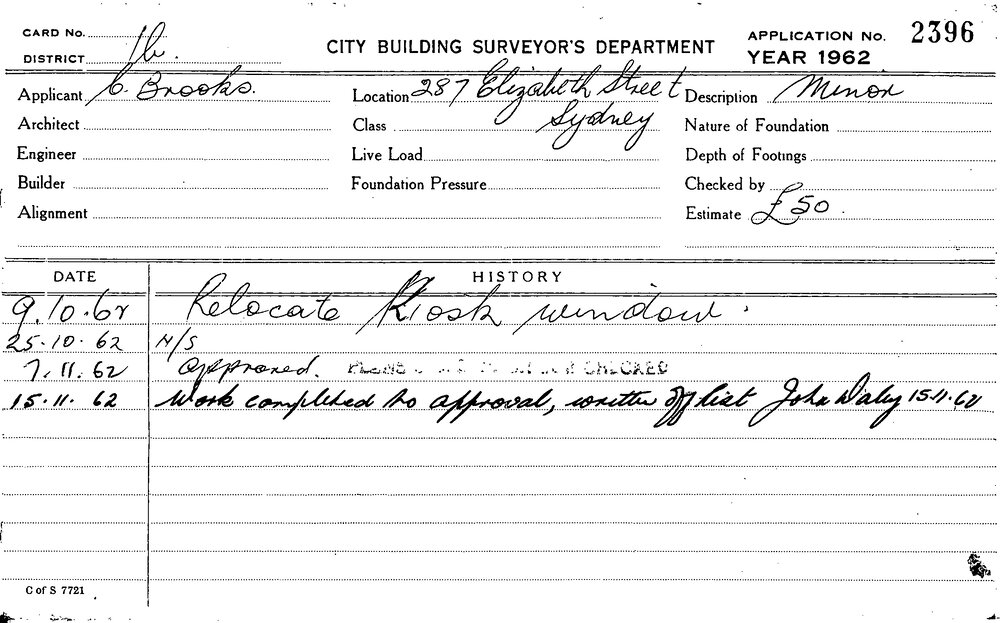 CARD No.
CITY BUILDING SURVEYOR'S DEPARTMENT
APPLICATION No. 2396
DISTRICT 1b.
YEAR 1962
Applicant C. Brooks.
Location 287 Elizabeth Street
Sydney
Description Minor
Architect
Class
Nature of Foundation
Engineer
Live Load
Depth of Footings
Builder
Foundation Pressure
Checked by
Alignment
Estimate £50
DATE HISTORY
9.10.62 Relocate Kiosk window.
25.10.62 N/S
7.11.62 approved. PLANS CHECKED
15.11.62 Work completed to approval, written off list John Daley 15.11.62
C of S 7721